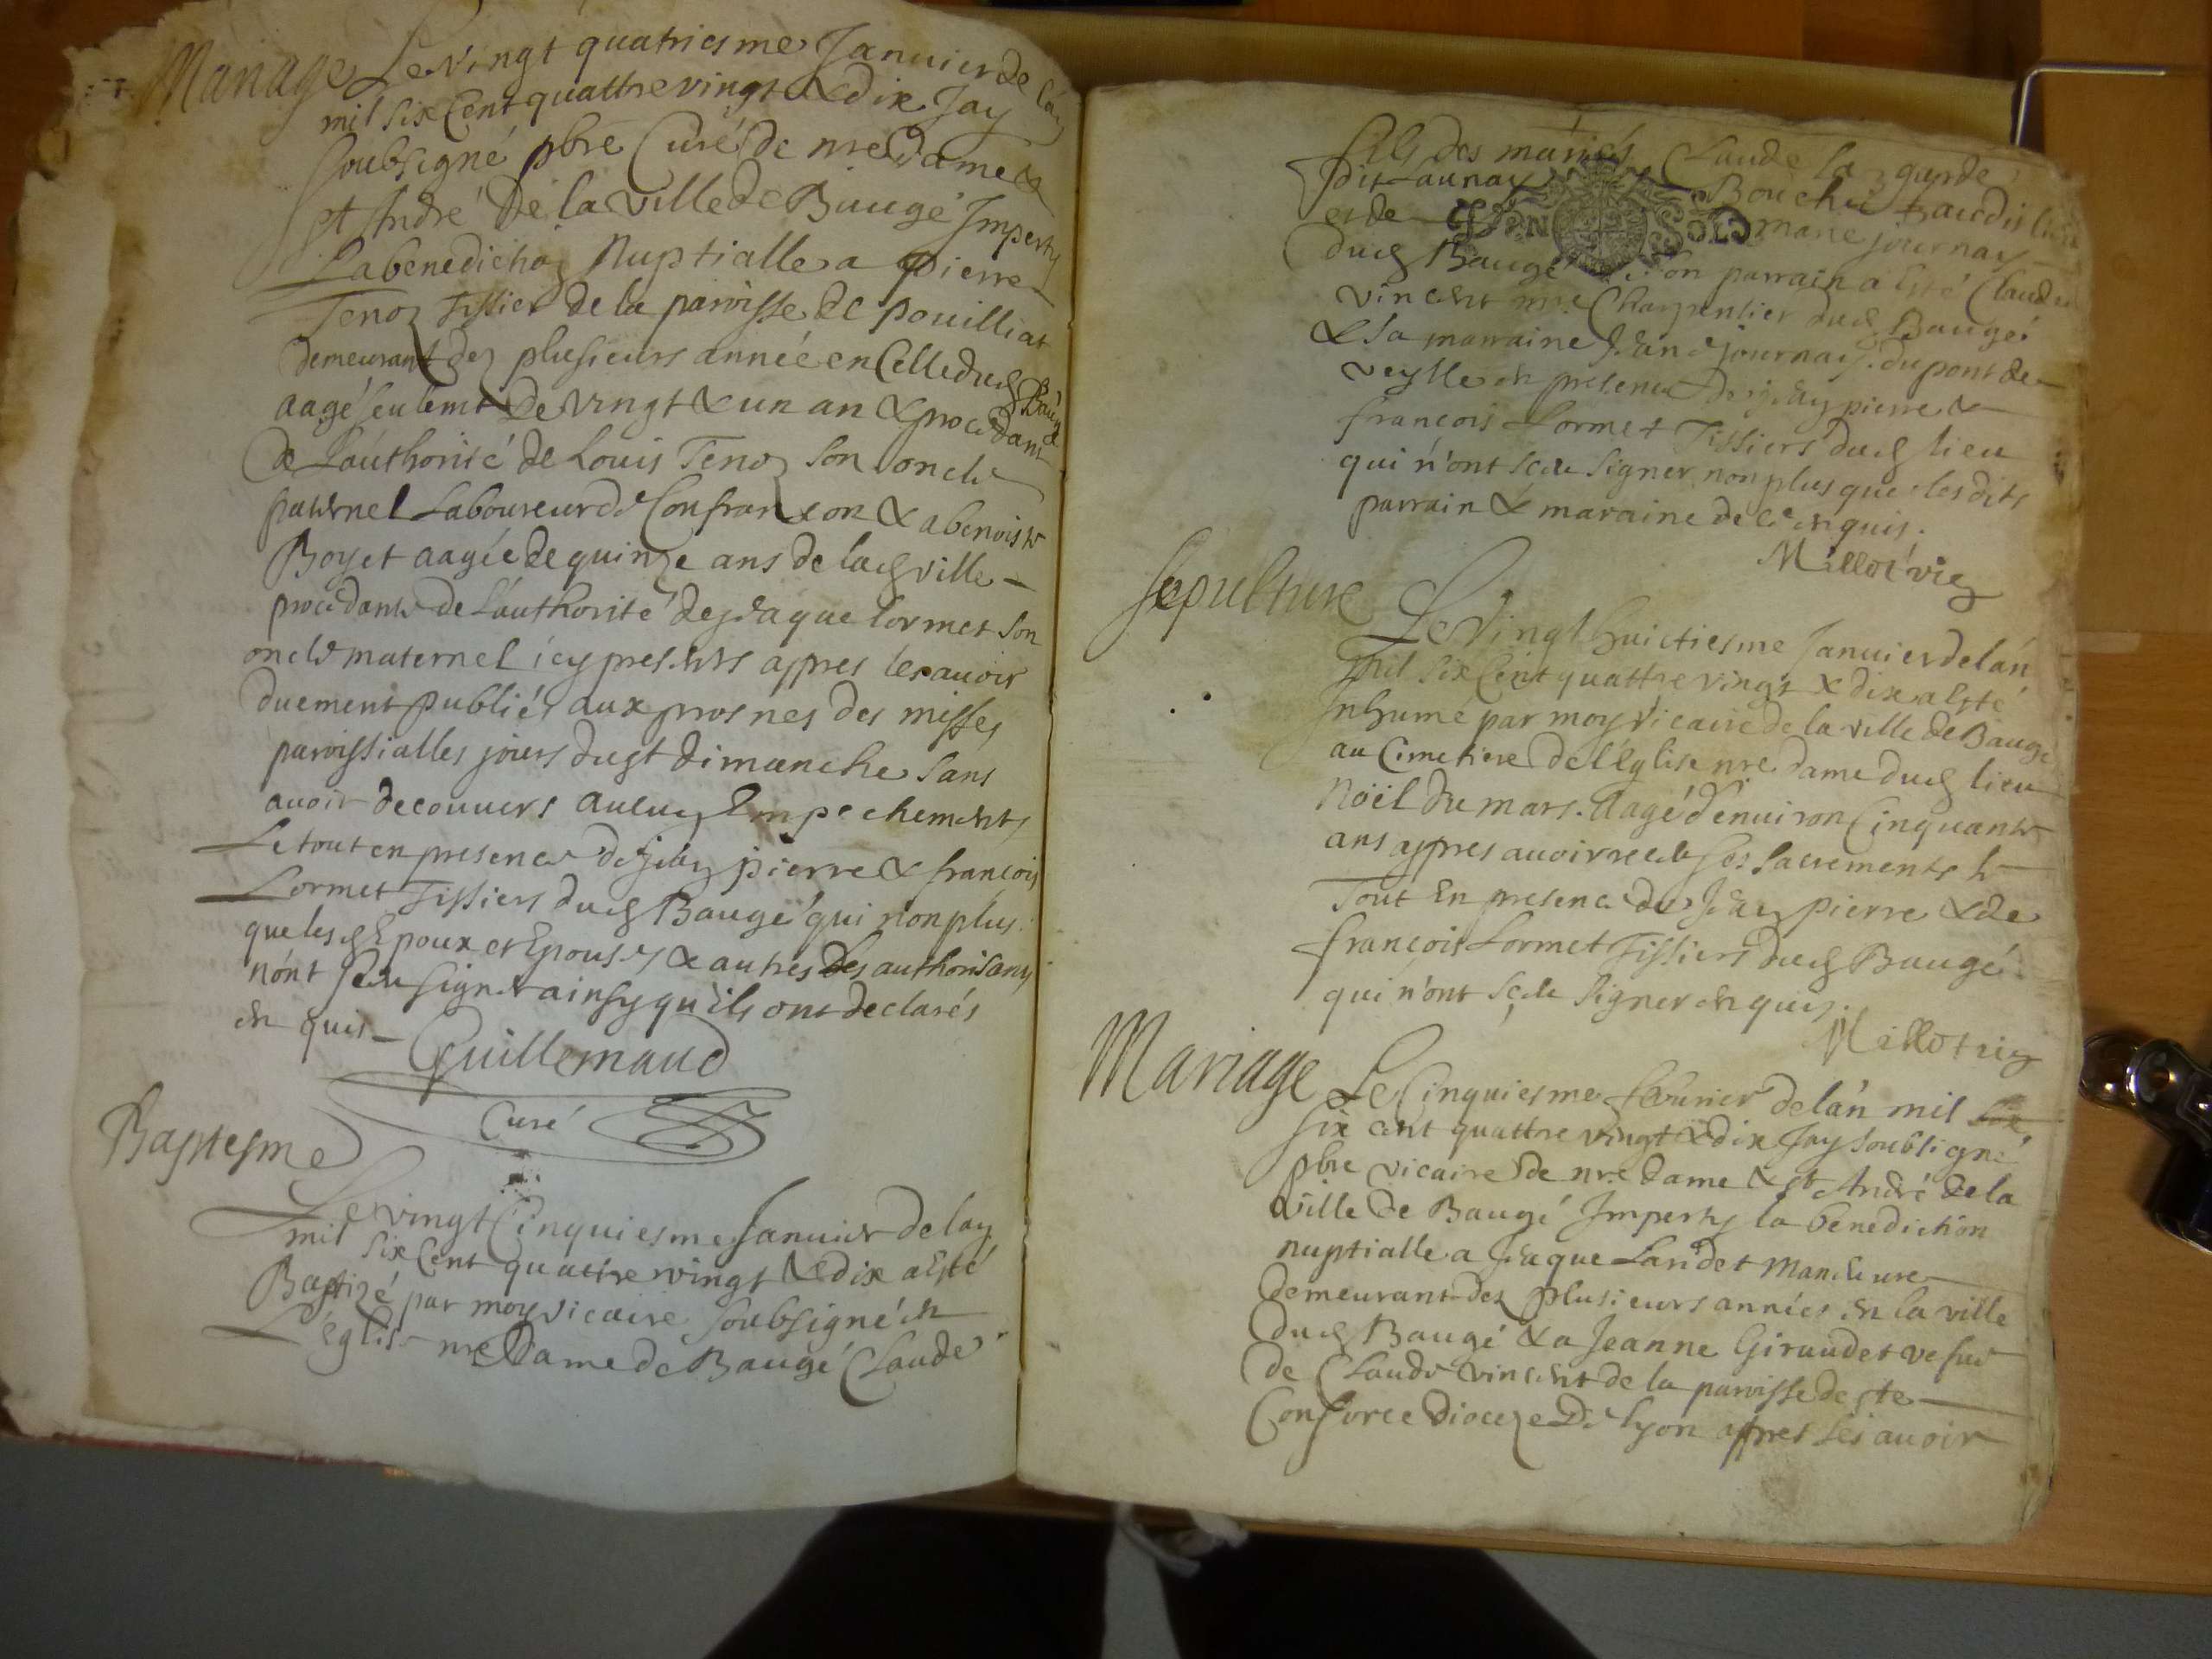 Mariage Le vingt quatriesme Januier de l'an
mil six Cent quattre vingt & dix Jay
soubsigné pbre Curé de nre dame &
st André de la ville de Baugé Imperty
La benediction Nuptialle a pierre
Tenon Tissier de la paroisse de pouilliat
demeurant dez plusieurs année en Celle dud Baugé
aagé seulemt de vingt & un an & procedant
de L'authorité de Louis Tenon son oncle
paternel Laboureur de Confranson & a benoiste
Boyet aagée de quinze ans de lad ville
procedante de L'authorité de Jaque lormet son
oncle maternel icy presents appres les auoir
duement publiés aux prosnes des messes
paroissialles jours dust dimanche sans
auoir decouuers aucun Empechements
Le tout en presence de Jean pierre & françois
Lormet Tissiers dud Baugé qui non plus
que les d Epoux et Epouse & autres Les authorisans
n'ont sceu signer ainsy qu'ils ont declarés
en quis
Guillemaud
Curé
Baptesme
Le vingt Cinquiesme Januier de lan
mil six Cent quattre vingt & dix a esté
Baptizé par moy vicaire soubsigné en
L'église nre Dame de Baugé Claude
fils des mariés Claude la garde
dit Launay Bouchu
et de marie journay
dud Baugé son parrain a esté Claude
vincent mre Charpentier dud Baugé
& sa marraine Jeane journay du pont de
veylle en presence de Jean pierre &
françois Lormet Tissiers dud lieu
qui n'ont sceu signer non plus que lesdits
parrain & maraine de ce enquis.
Millot vic
Sepulture
Le Vingt huictiesme Januier de l'an
mil six Cent quattre vingt & dix a esté
Inhumé par moy vicaire de la ville de Baugé
au Cimetiere de l'Eglise nre dame dud lieu
Noël du mars. Aagé d'enuiron Cinquante
ans appres auoir receu ses sacrements le
Tout En presence de Jean pierre & de
françois Lormet Tissiers dud Baugé
qui n'ont sceu signer enquis.
Millot vic
Mariage Le Cinquiesme feburier de l'an mil six
six cent quattre vingt & dix Jay soubsigné
pbre vicaire de nre dame & st André de la
ville de Baugé Imperty la benediction
nuptialle a Jaque Laridet Maneuure
demeurant dez plusieurs années en la ville
dud Baugé & a Jeanne Giraudet vefue
de Claude vincent de la paroisse de ste
Consorce Dioceze De lyon appres les auoir